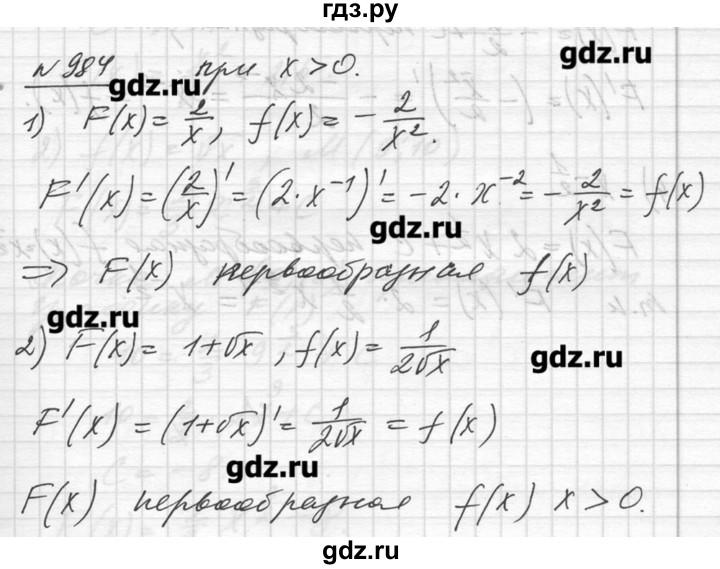 гдз.ру
N 984 при x > 0.
gdz.ru gdz.ru
1) F(x) = 2/x, f(x) = - 2/x².
F'(x) = (2/x)' = (2·x⁻¹)' = -2·x⁻² = - 2/x² = f(x)
gdz.ru
=> F(x) первообразная f(x)
gdz.ru
2) F(x) = 1+√x, f(x) = 1/2√x
gdz.ru
F'(x) = (1+√x)' = 1/2√x = f(x)
gdz.ru
F(x) первообразная f(x) x > 0.
gdz.ru